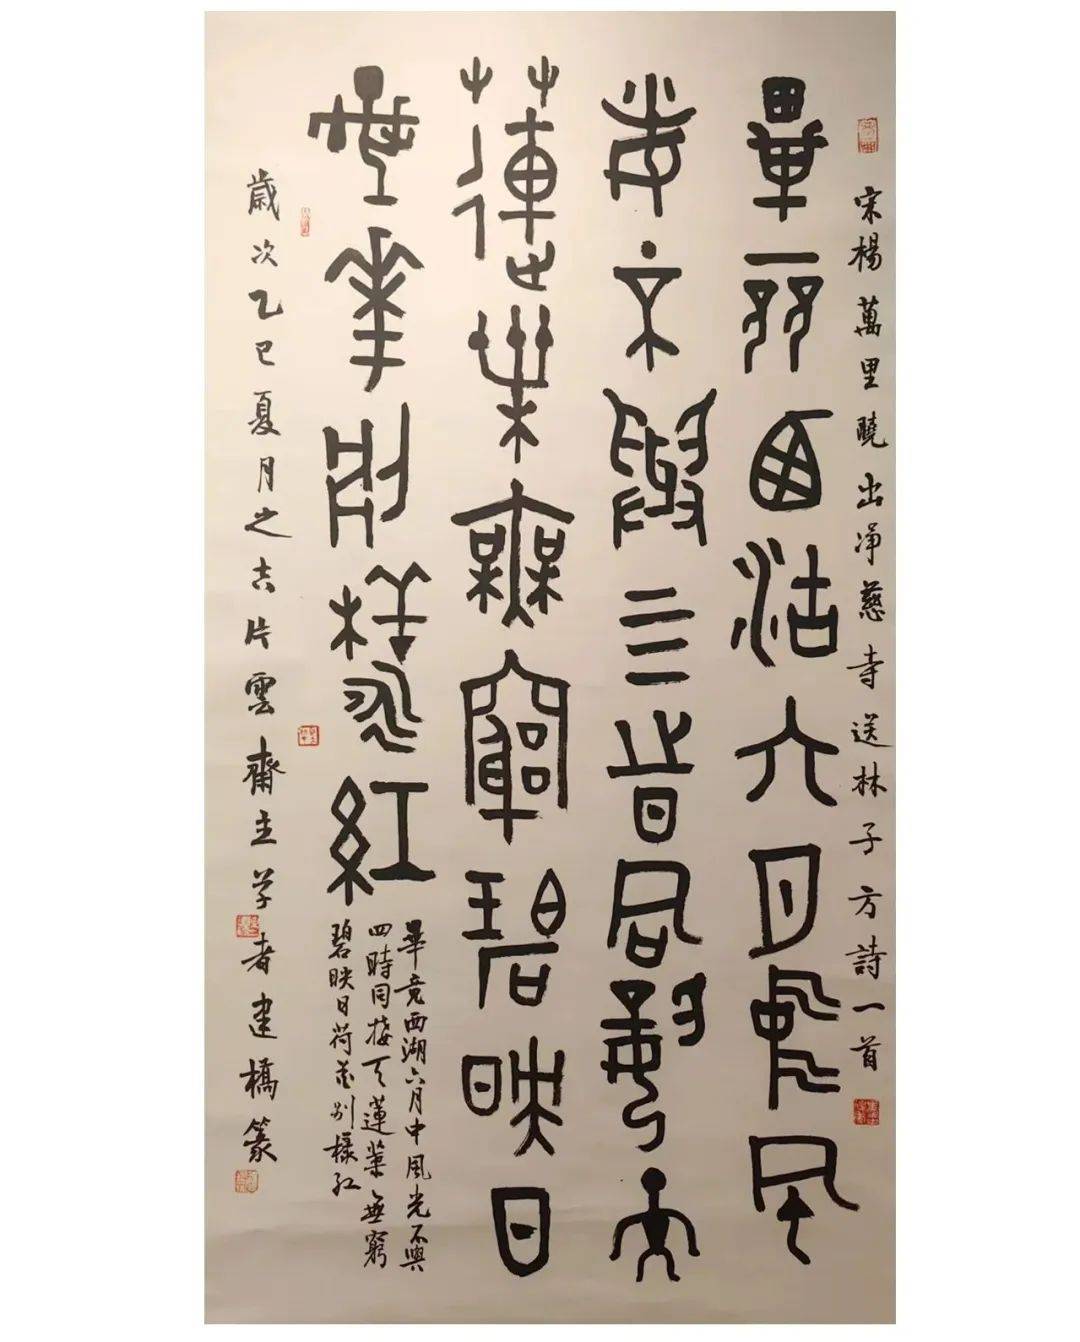 宋楊萬里曉出凈慈寺送林子方詩一首
畢竟西湖六月中風
光不與四時同接天
蓮葉無窮碧映日
荷華別樣紅
畢竟西湖六月中風光不與
四時同接天蓮葉無窮
碧映日荷花别樣红
歲次乙巳夏月之吉片雲齋主学者建橋篆